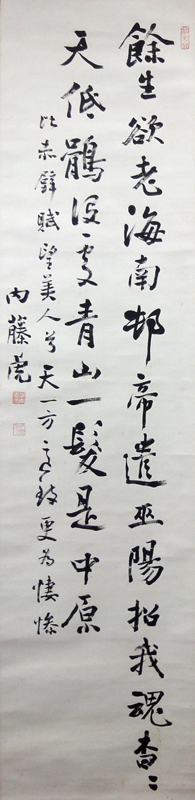 餘生欲老海南邨帝遣巫陽招我魂杳〻
天低鶻没處青山一髮是中原
比赤壁賦望美人兮天一方之致更為悽惨
内藤虎